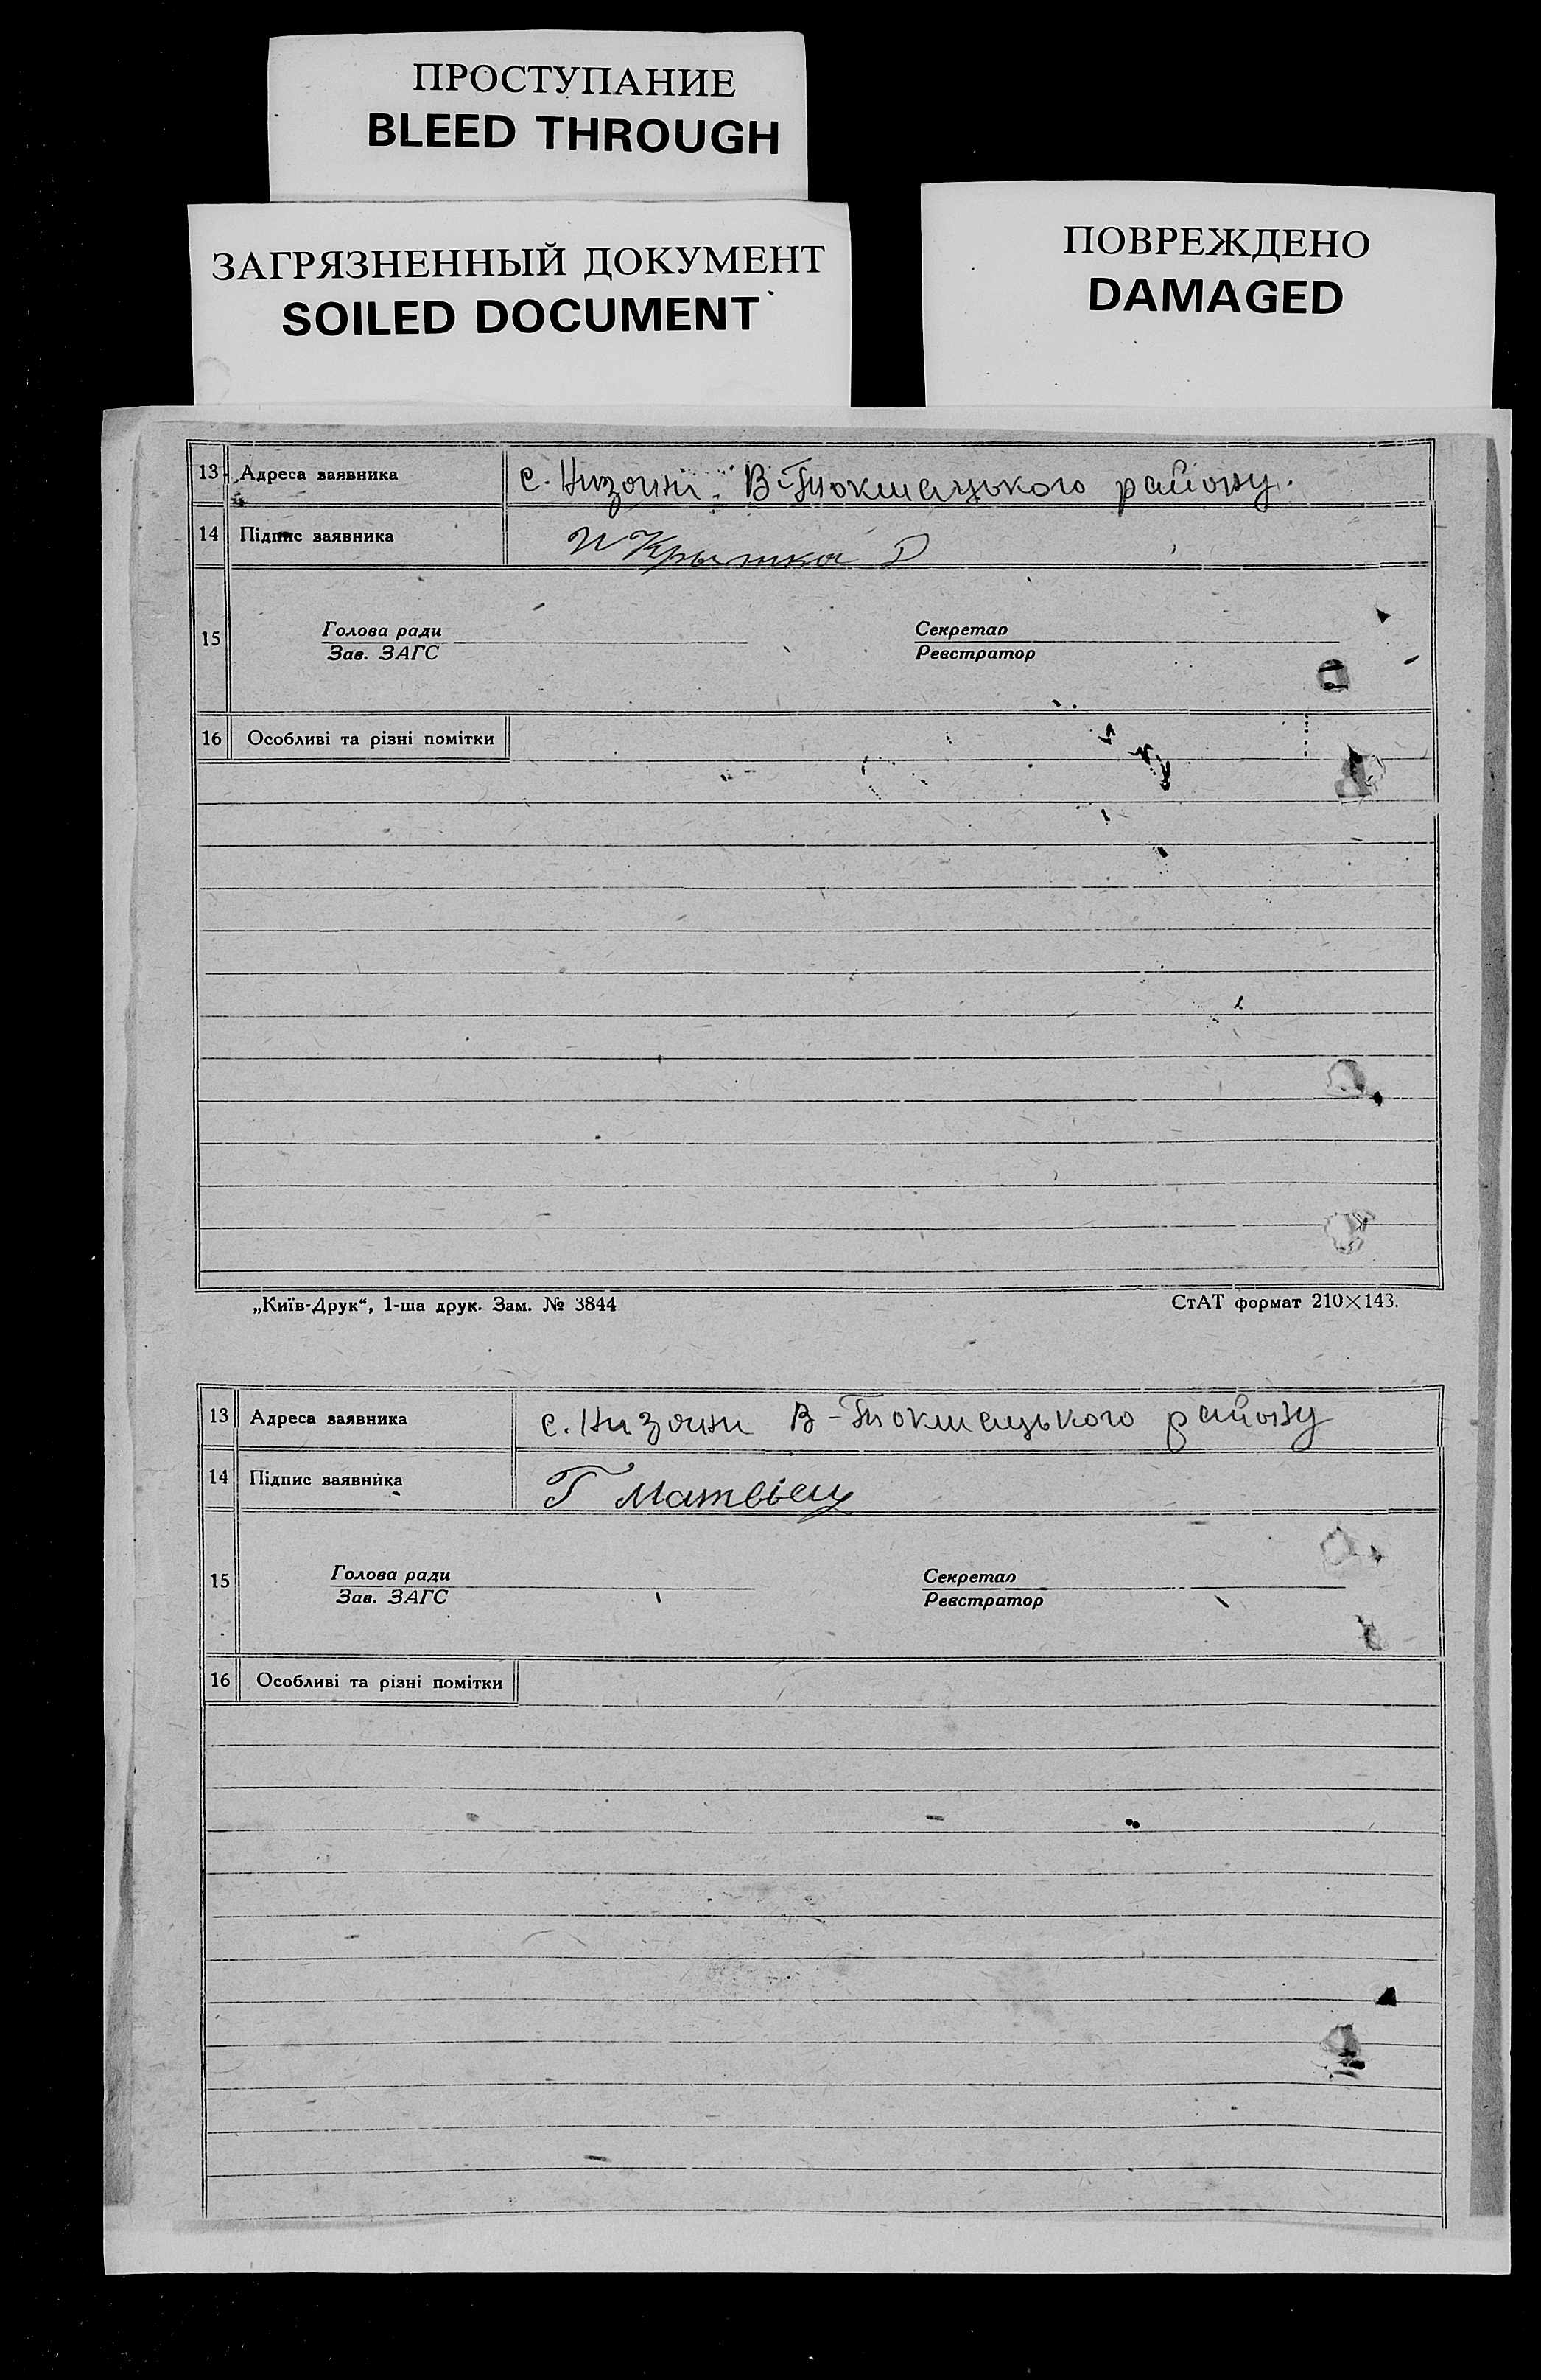 ПРОСТУПАНИЕ
BLEED THROUGH
ЗАГРЯЗНЕННЫЙ ДОКУМЕНТ
SOILED DOCUMENT
ПОВРЕЖДЕНО
DAMAGED
13 Адреса заявника с. Низяни В-Токмацького району.
14 Підпис заявника
15 Голова ради Секретар
Зав. ЗАГС Реєстратор
16 Особливі та різні помітки
„Київ-Друк“, 1-ша друк. Зам. № 3844 СтАТ формат 210×143.
13 Адреса заявника с. Низяни В-Токмацького району
14 Підпис заявника Г Матвієц
15 Голова ради Секретар
Зав. ЗАГС Реєстратор
16 Особливі та різні помітки